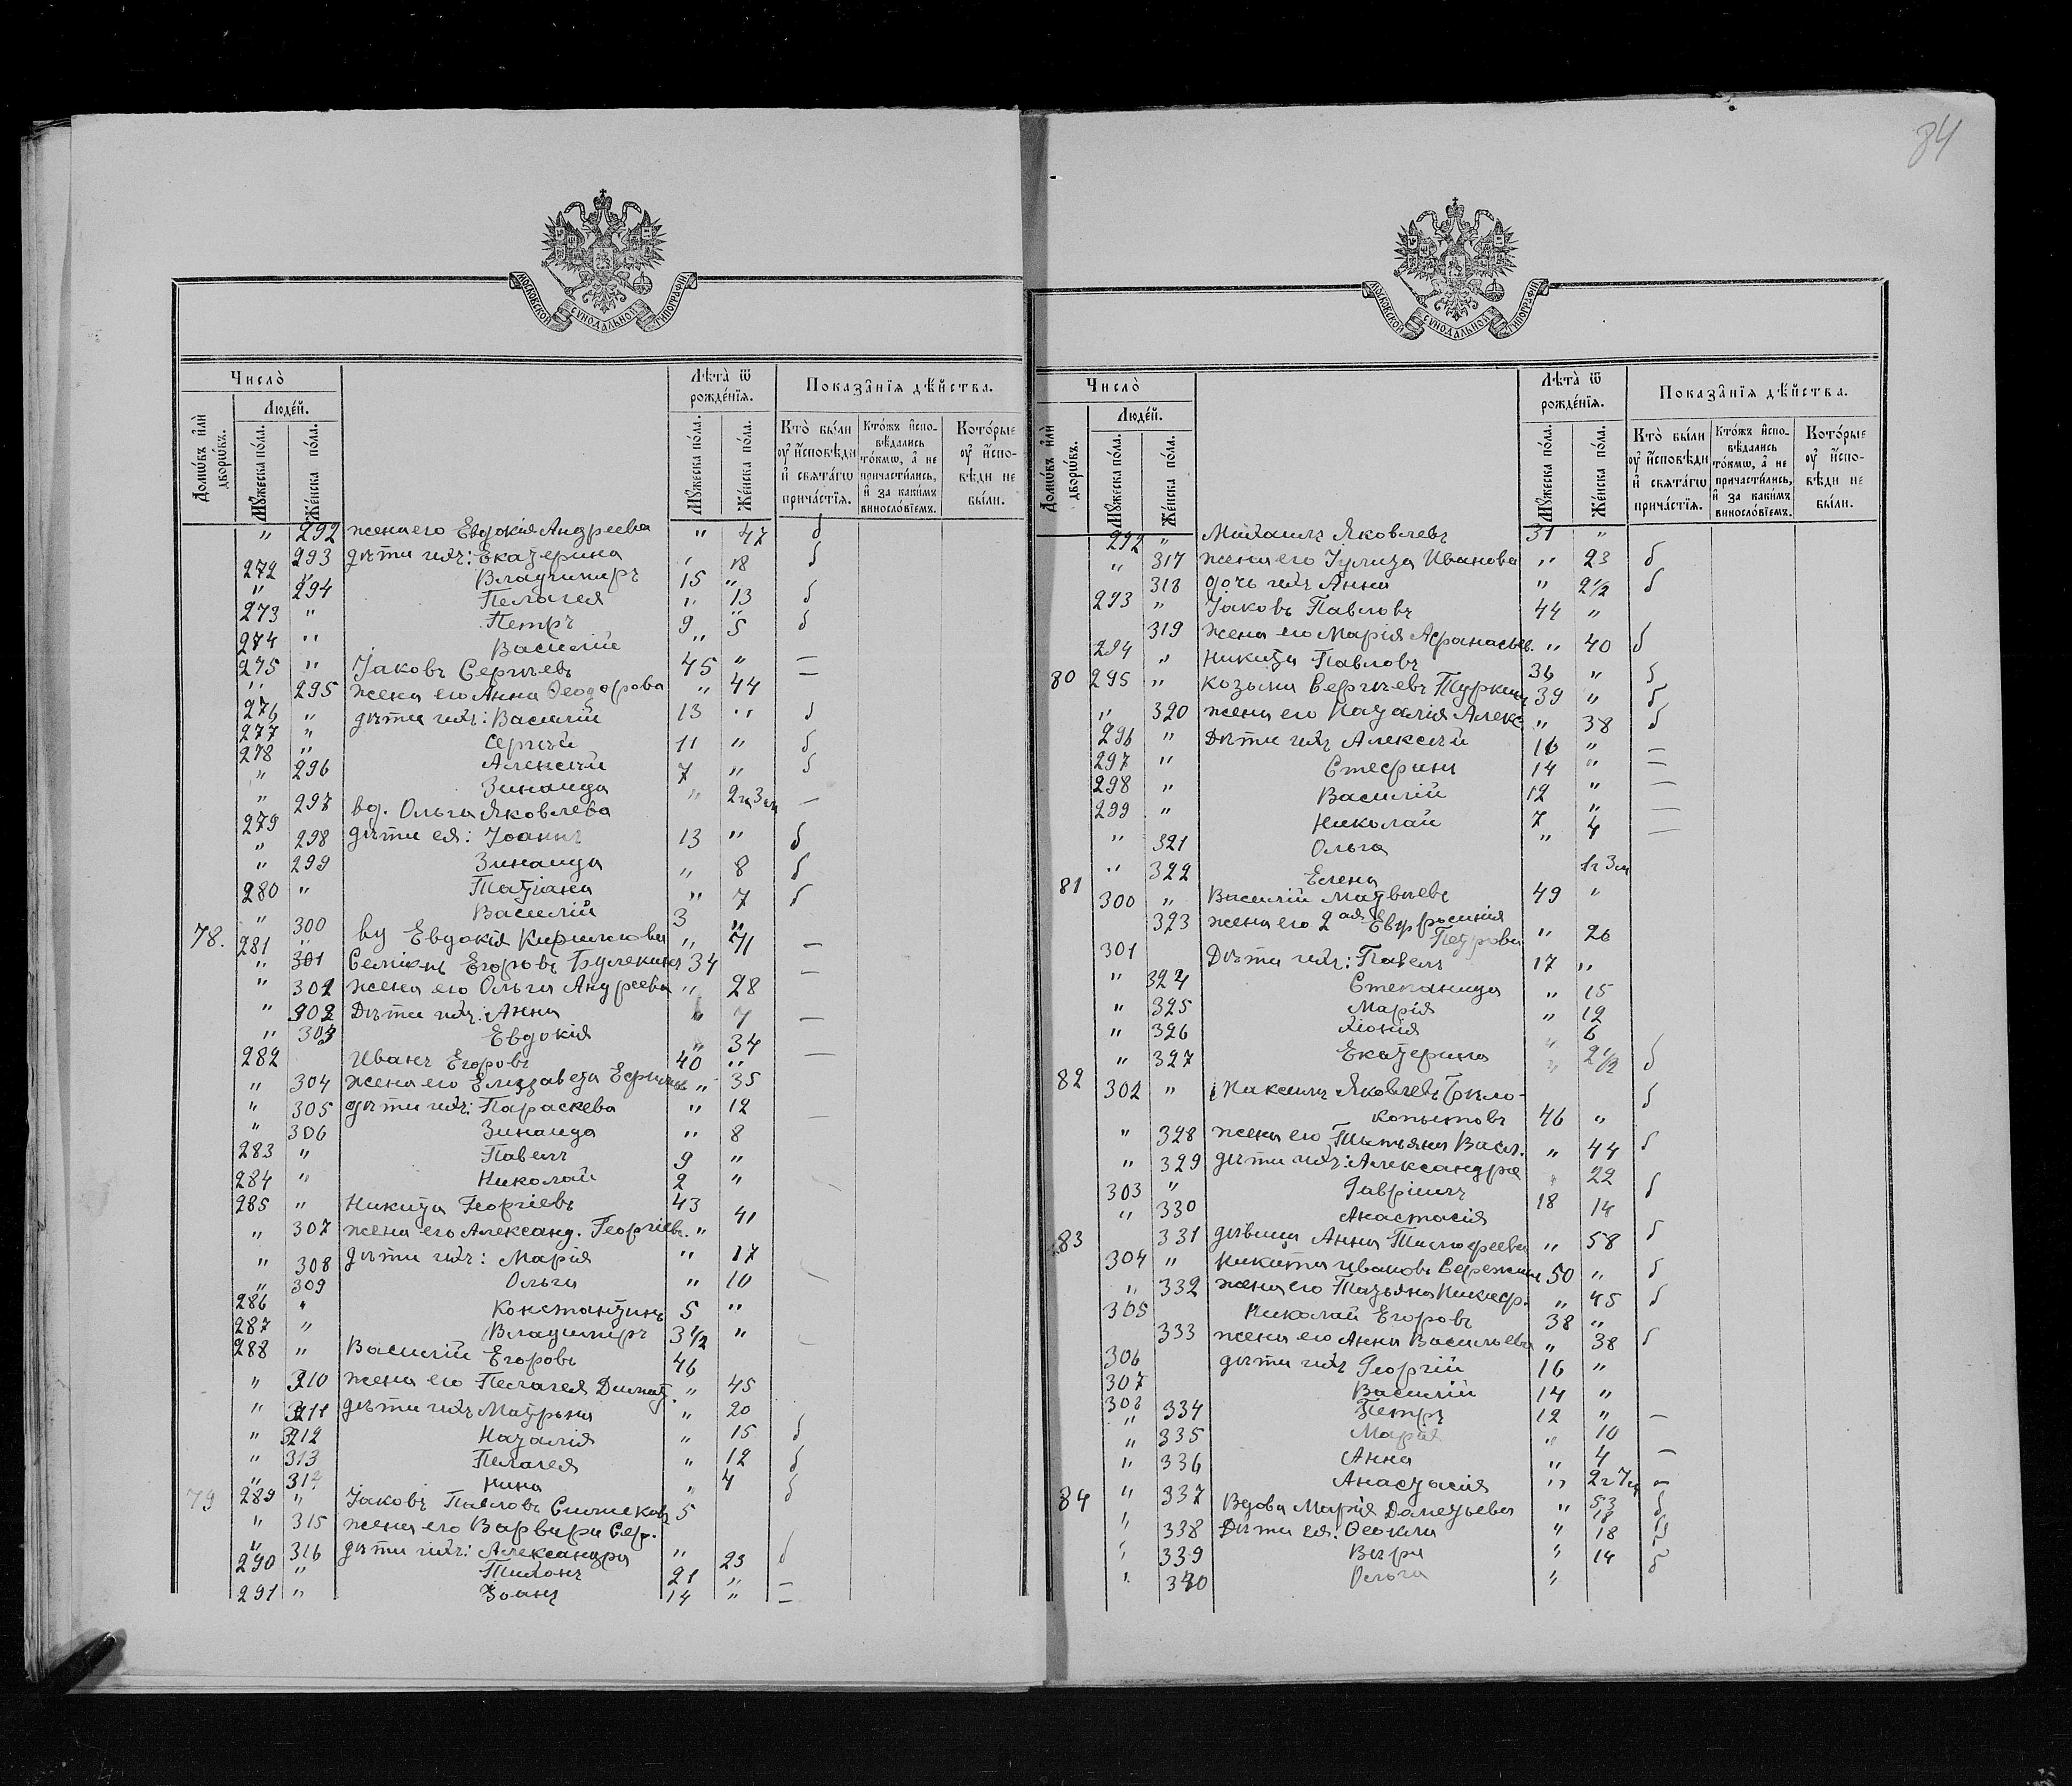 84
МОСКОВСКОЙ СѴНОДАЛЬНОЙ ТИПОГРАФІИ
Число̀
Домѡ́въ и҆лѝ дворѡ́въ.
Люде́й.
Мꙋ́жеска по́ла.
Же́нска по́ла.
Лѣ́та ѿ рожде́нїѧ.
Мꙋ́жеска по́ла.
Же́нска по́ла.
Показа̑нїѧ дѣ́йства.
Кто̀ бы́ли ᲂу҆ и҆сповѣди и҆ свѧта́гѡ прича́стїѧ.
Кто́жъ и҆сповѣдались то́кмѡ, а҆ не причасти́лись, и҆ за каки́мъ винослові́емъ.
Кото́рые ᲂу҆ и҆сповѣди не бы́ли.
" 292 жена его Евдокія Андреева " 47
293 дѣти ихъ: Екатерина " 18
272 " Владимиръ 15 "
" 294 Пелагея " 13
273 " Петръ 9 "
274 " Василій 5
275 " Іаковъ Сергѣевъ 45 " —
" 295 жена его Анна Ѳеодорова " 44 —
276 " дѣти ихъ: Василій 13 "
277 " Сергѣй 11 "
278 " Алексѣй 7 "
" 296 Зинаида " 2 г 3 м
" 297 вд. Ольга Яковлева —
279 " дѣти ея: Іоаннъ 13 "
" 298 Зинаида " 8
" 299 Татіана " 7
280 " Василій 3 "
78. " 300 вд Евдокія Кириллова " 71 —
281 " Семіонъ Егоровъ 34 —
" 301 жена его Ольга Андреева " 28
" 302 Дѣти ихъ: Анна " 7 —
" 303 Евдокія "
282 Иванъ Егоровъ 40 " —
" 304 жена его Елизавета " 35
" 305 дѣти ихъ: Параскева " 12 —
" 306 Зинаида " 8
283 " Павелъ 9 "
284 " Николай 2 " —
285 " Никита Георгіевъ 43
" 307 жена его Александ. Георгіев. " 41
" 308 дѣти ихъ: Марія " 17
" 309 Ольга " 10 —
286 " Константинъ 5 "
287 " Владимиръ 3 1/2 " —
288 " Василій Егоровъ 46
" 310 жена его Пелагея Димит. " 45
" 311 дѣти ихъ Матрона " 20
" 312 Наталія " 15
" 313 Пелагея " 12
" Нина " 4
79 289 " Іаковъ Павловъ 5
" 315 жена его Варвара Сер.
" 316 дѣти ихъ: Александра " 23
290 " Тихонъ 21 " —
291 " Іоаннъ 14 " —
МОСКОВСКОЙ СѴНОДАЛЬНОЙ ТИПОГРАФІИ
Число̀
Домѡ́въ и҆лѝ дворѡ́въ.
Люде́й.
Мꙋ́жеска по́ла.
Же́нска по́ла.
Лѣ́та ѿ рожде́нїѧ.
Мꙋ́жеска по́ла.
Же́нска по́ла.
Показа̑нїѧ дѣ́йства.
Кто̀ бы́ли ᲂу҆ и҆сповѣди и҆ свѧта́гѡ прича́стїѧ.
Кто́жъ и҆сповѣдались то́кмѡ, а҆ не причасти́лись, и҆ за каки́мъ винослові́емъ.
Кото́рые ᲂу҆ и҆сповѣди не бы́ли.
292 " Михаилъ Яковлевъ 31 "
" 317 жена его Іулита Иванова " 23
318 дочь ихъ Анна " 2 1/2
293 " Іаковъ Павловъ 44 "
319 жена его Марія Афанасьев. " 40
294 " Никита Павловъ 36 "
80 295 " Козьма Сергѣевъ 39 "
" 320 жена его Наталія Алекс " 38
296 " Дѣти ихъ Алексѣй 16 " —
297 " Стефанъ 14 " —
298 " Василій 12 " —
299 " Николай 7 " —
" 321 Ольга " 4 —
" 322 Елена 1 г 3 м
81 300 " Василій Матвѣевъ 49 "
323 жена его 2ая Евфросинія
Петрова " 26
301 Дѣти ихъ: Павелъ 17 "
" 324 Степанида " 15
" 325 Марія " 12
" 326 Хіонія " 6
" 327 Екатерина " 2 1/2
82 302 " Максимъ Яковлевъ
копытовъ 46 "
" 328 жена его Татьяна Васил. " 44
" 329 дѣти ихъ: Александра " 22
303 " Гавріилъ 18
" 330 Анастасія 14
331 дѣвица Анна Тимофеева " 58
83 304 " Никита Ивановъ 50 "
" 332 жена его Татьяна Никиф. " 45
305 Николай Егоровъ 38 "
333 жена его Анна Васильева " 38
306 дѣти ихъ Георгій 16 "
307 Василій 14 "
308 Петръ 12 " —
" 334 Марія " 10
" 335 Анна " 4 —
" 336 Анастасія " 2 г 7 м —
84 " 337 Вдова Марія Дометьева " 53
" 338 Дѣти ея: Ѳеокла " 18
" 339 Вѣра " 14
" 340 Ольга "